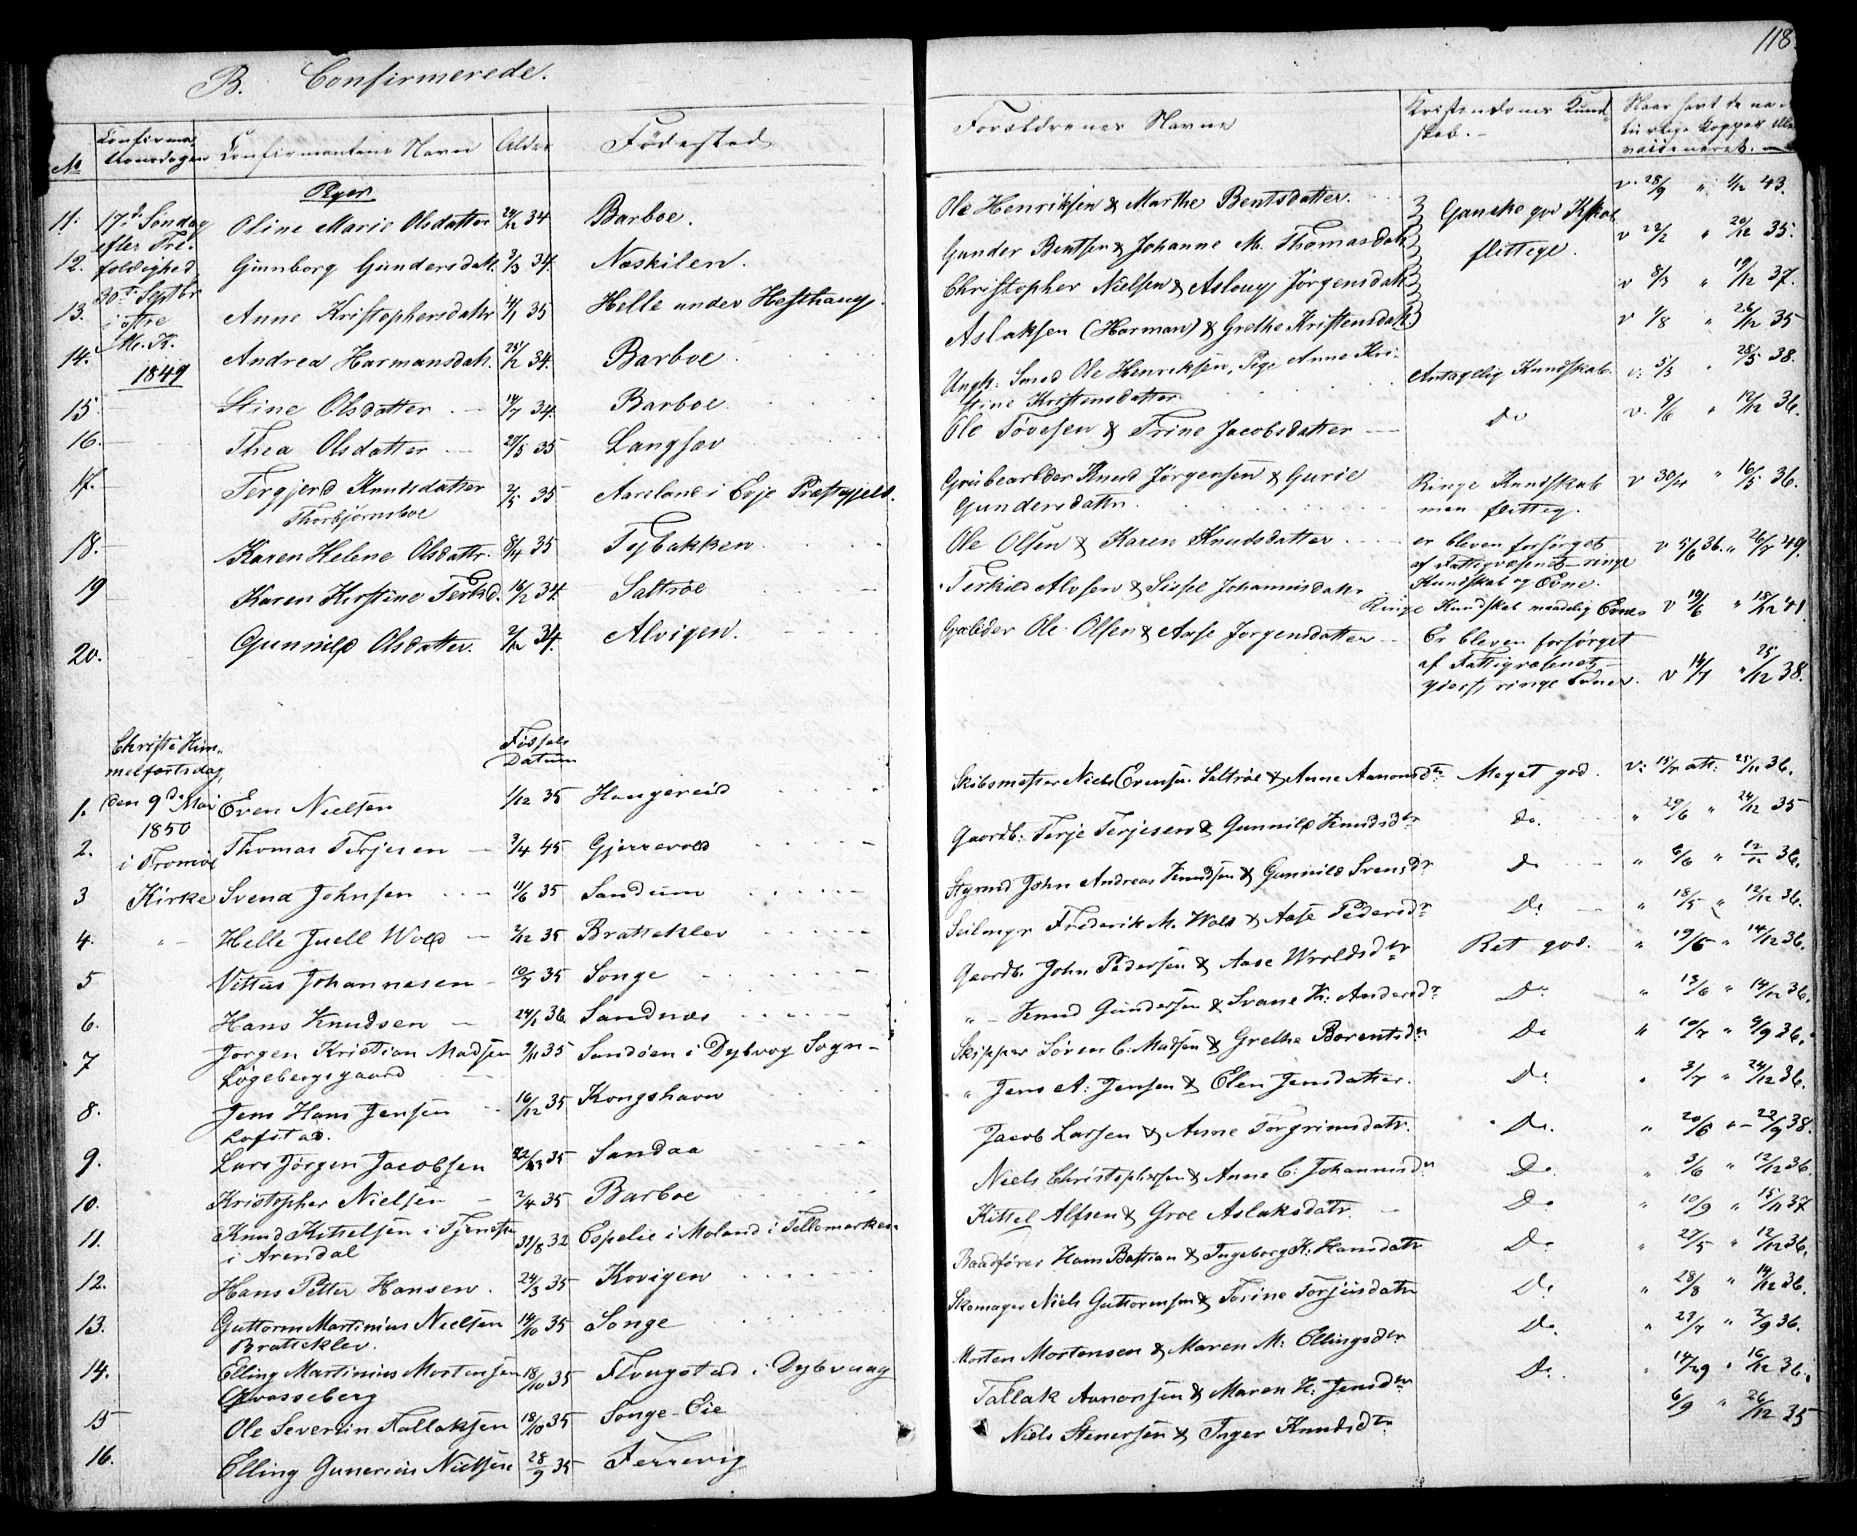 118.
B. Confirmerede.
No Confirmationsdagen Confirmantens Navn Alder Fødested Forældrenes Navne Kristendoms Kundskab. Naar havt de naturlige Kopper eller vaccineret.
Piger
11. 17de Søndag Oline Marie Olsdatter 24/12 34 Barboe. Ole Henriksen & Marthe Bentsdatter. Ganske god Kskab v. 28/9 " 1/12 43.
efter Tre-
12. foldighed, Gunborg Gundersdatt. 3/3 34. Næskilen. Gunder Bentsen & Johanne M. Thomasdatt flittige. v 22/2 " 20/12 35.
30te Septbr
13. i østre Anne Kristophersdatter 35 Helle under Hesthaug. Christopher Nielsen & Aslaug Jørgensdatt v 8/3 " 19/12 37.
M. K.
14. 1849 Andrea Harmansdatt. 34. Barboe. Aslaksen (Harman) & Grethe Kristensdatt v 1/8 " 26/12 35
15 Stine Olsdatter 14/7 34. Barboe Ungk. Smed Ole Henriksen, Pige Anne Kri- Antagelig Kundskab. v. 5/3 " 28/5 38.
stine Kristensdatter
16. Thea Olsdatter 29/5 35 Langsæv Ole Tovesen & Trine Jacobsdatter do v. 9/6 " 12/12 36.
17. Tergjerd Knudsdatter 2/5 35 Aareland i Evje Præstegjeld. Grubearbeider Knud Jørgensen & Gurie Ringe Kundskab v 30/4 " 16/5 36.
Thorbjørnsboe Gundersdattr. men flittig.
18. Karen Helene Olsdattr. 8/4 35 Tybakken Ole Olsen & Karen Knudsdatter er bleven forsørget v 5/6 36. " 26/7 49.
af Fattigvæsenet ringe
19 Karen Kirstine Terkd. 16/2 34. Saltrøe Terkild Alvsen & Sissel Johannisdatr Kundskab og Evne.
Ringe Kundskab maadelig Evner v 19/6 " 18/12 41.
20. Gunnild Olsdatter. 2/12 34. Alvigen. Ole Olsen & Aase Jørgensdatter Er bleven forsørget
af Fattigvæsenet v 14/7 " 25/12 38.
ringe Evner.
Christi Him- Fødsels
melfartsdag, Datum
1. den 9de Mai Even Nielsen 1/12 35 Haugereid Skibsmester Niels Evensen Saltrøe & Anne Aanonsdtr Meget god. v: 15/7 att: 25/11 36.
1850
2. i Tromøe Thomas Terjesen 3/4 45 Gjerrevold Gaardb. Terje Terjesen & Gunnild Knudsdtr Do. " 29/6 " 24/12 35
3 Kirke Svend Johnsen 11/6 35 Sandum Styrmd John Andreas Knudsen & Gunnild Svensdr Do " 6/6 " 12/12 36.
4. Helle Juell Wold 2/12 35 Bratteklev Seilmgr Frederik M. Wold & Aase Pedersdr Do " 18/5 " 12/12 36.
5 Vittus Johannesen 10/7 35 Songe Gaardb. John Pedersen & Aase Wroldsdtr Ret god. " 19/5 " 14/12 36.
6. Hans Knudsen 24/1 36 Sandnæs " Knud Gundersen & Svane K: Andersdr Do " 13/6 " 14/12 36.
7 Jørgen Kristian Madsen 9/11 35 Sandøen i Dybvog Sogn Skipper Søren C. Madsen & Grethe Berentsdtr Do " 10/7 " 9/9 36.
Løgebergsgaard
8. Jens Hans Jensen 16/12 35 Kongshavn " Jens A: Jensen & Elen Jensdatter. Do " 3/7 " 24/12 36.
Lofstad.
9. Lars Jørgen Jacobsen 35 Sandaa Jacob Larsen & Anne Torgrimsdatr. Do. " 20/6 " 22/9 38.
10. Kristopher Nielsen 2/4 35 Barboe Niels Christophersen & Anne C: Johannisdtr Do " 3/6 " 12/12 36.
11. Knud Kittelsen i Tjeneste 31/8 32 Espelie i Moland i Tellemarken Kittel Alfsen & Groe Aslaksdatr. Do " 10/9 " 15/11 37
i Arendal
12. Hans Petter Hansen. 24/3 35 Kovigen Baadfører Hans Bastian & Ingeborg K: Hansdatr Do " 27/5 " 12/12 36.
13. Guttorm Martinius Nielsen 14/10 35 Songe Skomager Niels Guttormsen & Torine Torjusdatr Do " 28/8 " 14/12 36.
Bratteklev.
14. Elling Martinius Mortensen 18/10 35 Flougstad i Dybvaag Morten Mortensen & Maren M: Ellingsdtr Do. " 23/7 " 2/9 36.
Qvasseberg
15 Ole Severin Tallaksen 18/10 35 Songe-Eie Tallak Aanonsen & Maren K. Jensdtr Do. " " 16/12 36.
16. Elling Gunerius Nielsen 28/9 35 Færrevig Niels Stenersen & Inger Knudsdtr 6/9 " 26/12 35